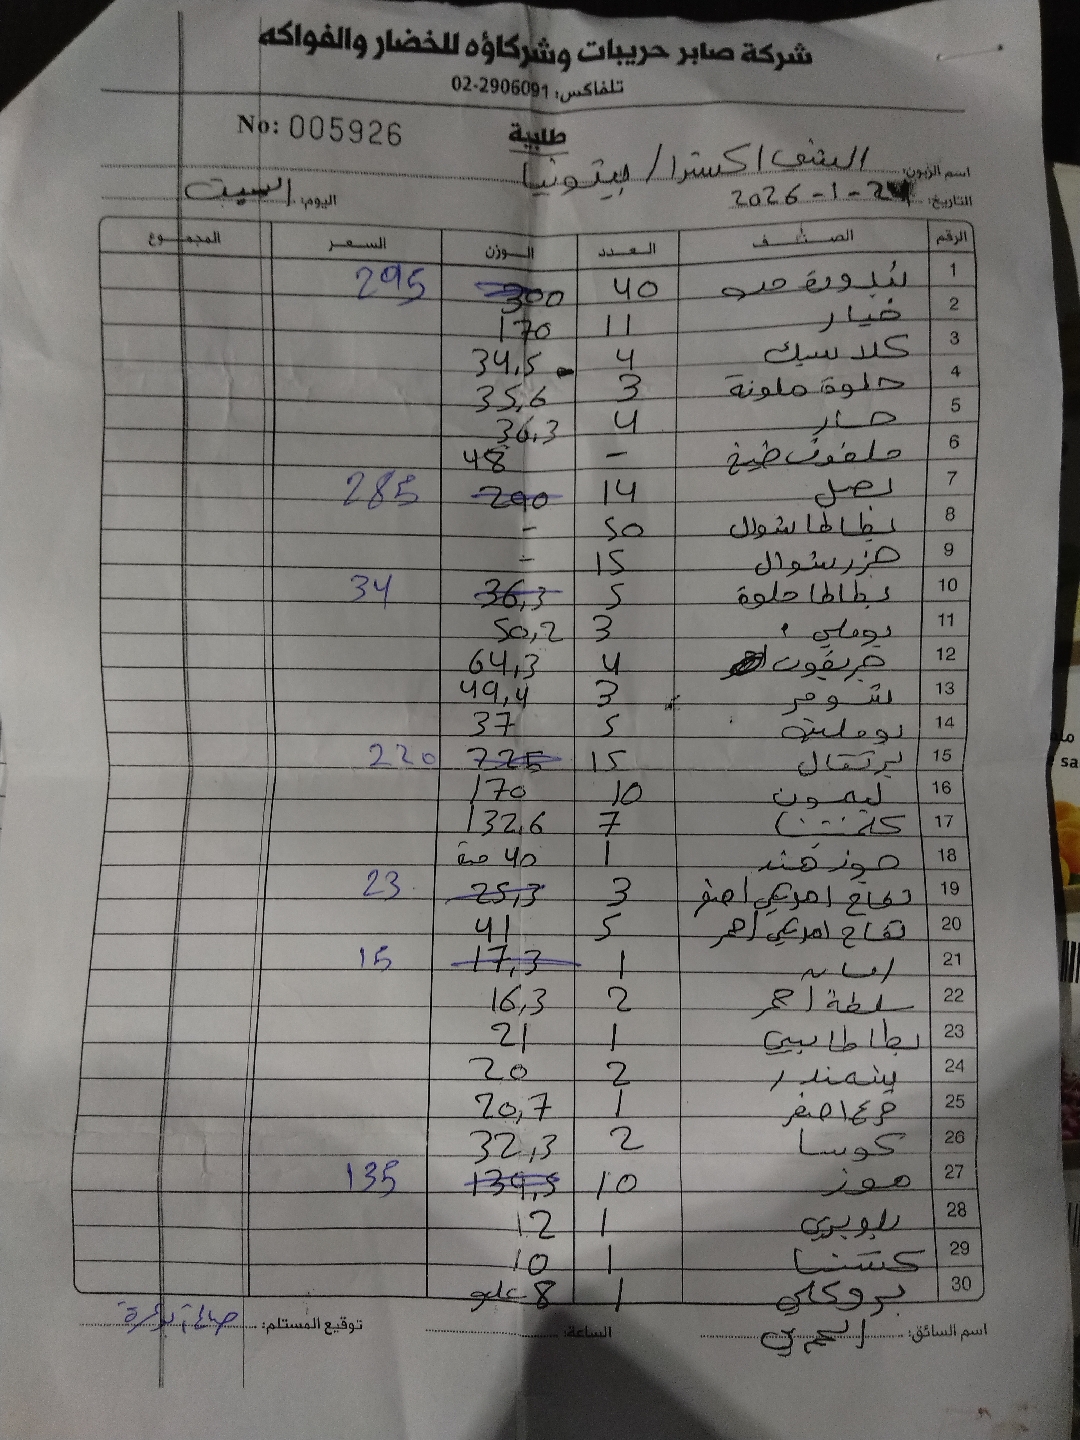 شركة صابر حريبات وشركاؤه للخضار والفواكه
تلفاكس: 02-2906091
No: 005926
طلبية
اسم الزبون: الشني اكسترا / بيتونيا
التاريخ: 2026-1-24 اليوم: السبت
الرقم الصنف العدد الوزن السعر المجموع
1 بندورة 40 300 295
2 خيار 11 170
3 كلاسيك 4 34,5
4 حلوة ملونة 3 35,6
5 حار 4 36,3
6 ملفوف طبخ - 48
7 بصل 14 290 285
8 بطاطا شوال 50 -
9 جزر شوال 15 -
10 بطاطا حلوة 5 36,3 34
11 بوملي 3 50,2
12 جريفوت احمر 4 64,3
13 شومر 3 49,4
14 5 37
15 برتقال 15 225 220
16 ليمون 10 170
17 كلمنتينا 7 132,6
18 جوز هند 1 40 حبة
19 تفاح امريكي اصفر 3 25,3 23
20 تفاح امريكي احمر 5 41
21 1 17,3 15
22 سلطة احمر 2 16,3
23 بطاطا بيبي 1 21
24 شمندر 2 20
25 قرع اصفر 1 20,7
26 كوسا 2 32,3
27 موز 10 139,5 135
28 1 12
29 كستنا 1 10
30 بروكلي 1 8
اسم السائق: الساعة: توقيع المستلم: